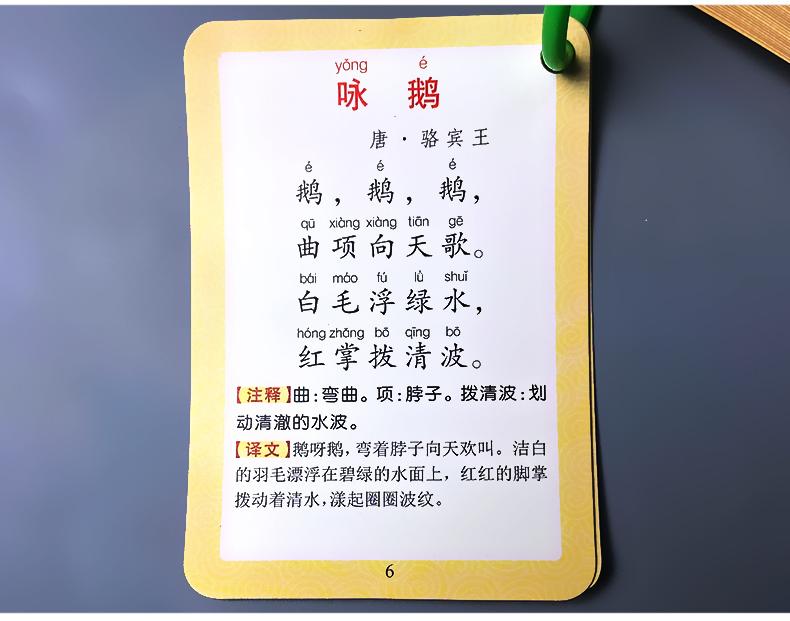 yǒng é
咏 鹅
唐·骆宾王
é é é
鹅，鹅，鹅，
qū xiàng xiàng tiān gē
曲项向天歌。
bái máo fú lǜ shuǐ
白毛浮绿水，
hóng zhǎng bō qīng bō
红掌拨清波。
【注释】曲：弯曲。项：脖子。拨清波：划
动清澈的水波。
【译文】鹅呀鹅，弯着脖子向天欢叫。洁白
的羽毛漂浮在碧绿的水面上，红红的脚掌
拨动着清水，漾起圈圈波纹。
6